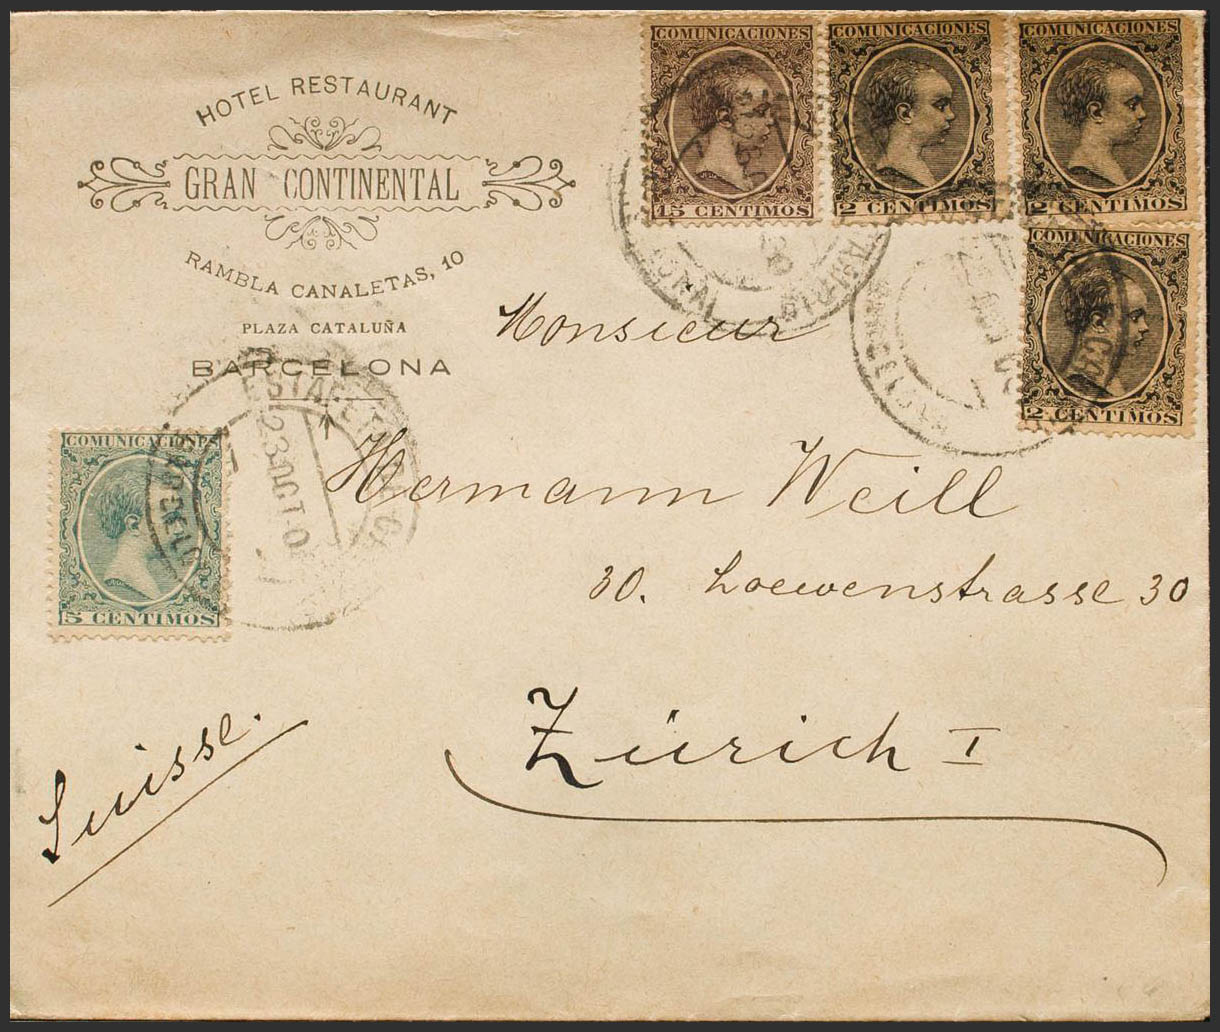 HOTEL RESTAURANT
GRAN CONTINENTAL
RAMBLA CANALETAS, 10
PLAZA CATALUÑA
BARCELONA
COMUNICACIONES
15 CENTIMOS
COMUNICACIONES
2 CENTIMOS
COMUNICACIONES
2 CENTIMOS
COMUNICACIONES
2 CENTIMOS
COMUNICACIONES
5 CENTIMOS
23 OCT
Monsieur
Hermann Weill
30. Loewenstrasse 30
Zürich I
Suisse.